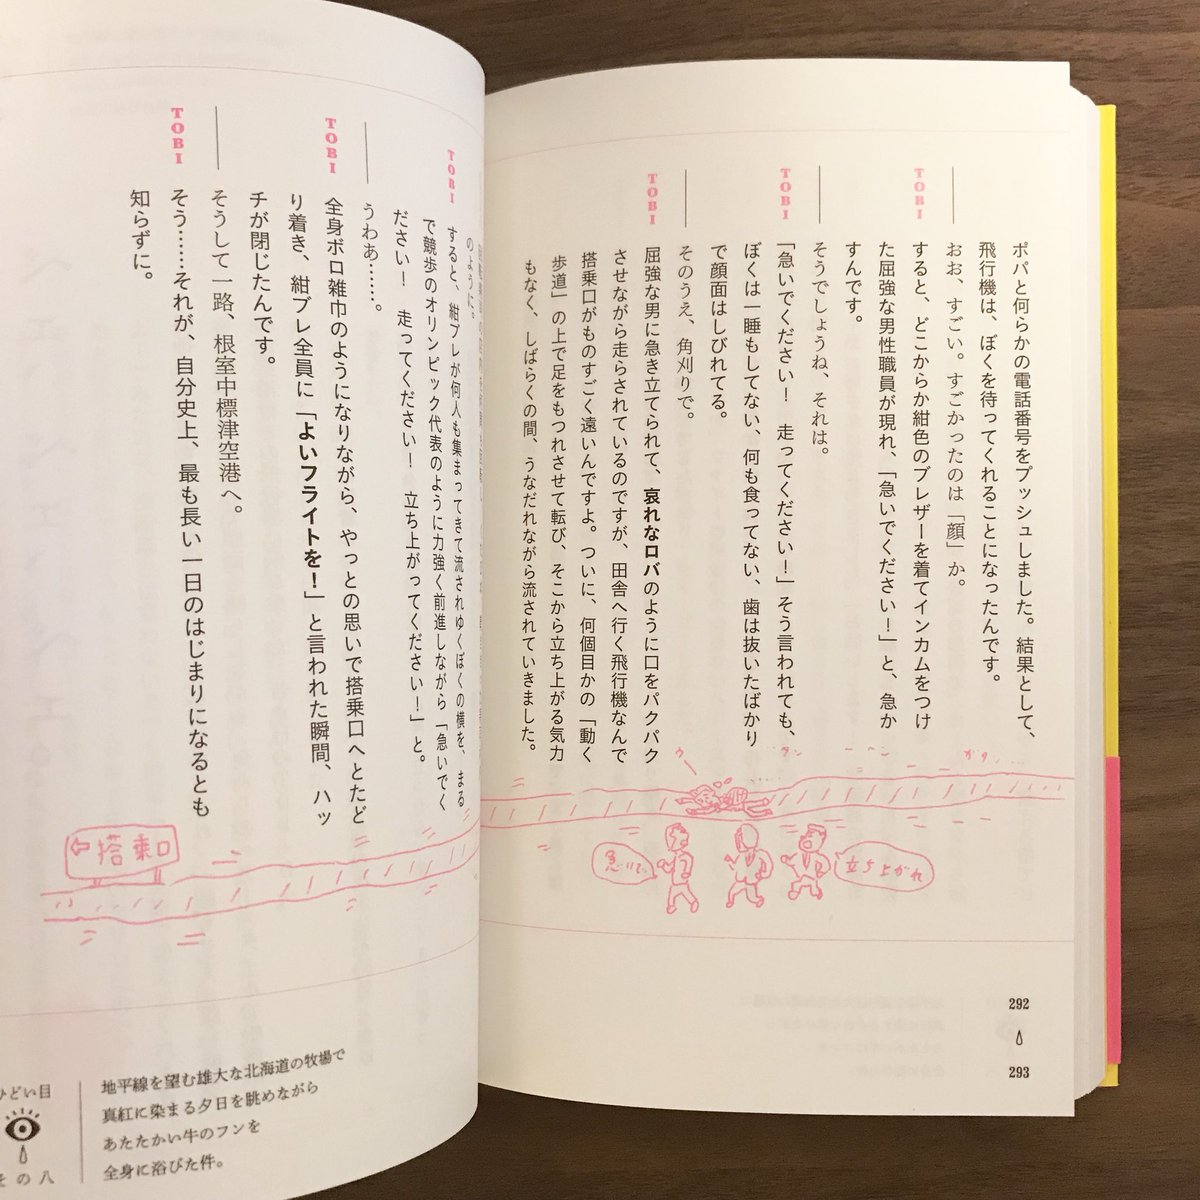 ポパと何らかの電話番号をプッシュしました。結果として、
飛行機は、ぼくを待ってくれることになったんです。
── おお、すごい。すごかったのは「顔」か。
TOBI すると、どこからか紺色のブレザーを着てインカムをつけ
た屈強な男性職員が現れ、「急いでください！」と、急か
すんです。
── そうでしょうね、それは。
TOBI 「急いでください！　走ってください！」そう言われても、
ぼくは一睡もしてない、何も食ってない、歯は抜いたばかり
で顔面はしびれてる。
── そのうえ、角刈りで。
TOBI 屈強な男に急き立てられて、哀れなロバのように口をパクパク
させながら走らされているのですが、田舎へ行く飛行機なんで
搭乗口がものすごく遠いんですよ。ついに、何個目かの「動く
歩道」の上で足をもつれさせて転び、そこから立ち上がる気力
もなく、しばらくの間、うなだれながら流されていきました。
急いで
立ち上がれ
292
293
のように。
TOBI すると、紺ブレが何人も集まってきて流されゆくぼくの横を、まる
で競歩のオリンピック代表のように力強く前進しながら「急いでく
ださい！　走ってください！　立ち上がってください！」と。
── うわあ……。
TOBI 全身ボロ雑巾のようになりながら、やっとの思いで搭乗口へとたど
り着き、紺ブレ全員に「よいフライトを！」と言われた瞬間、ハッ
チが閉じたんです。
── そうして一路、根室中標津空港へ。
TOBI そう……それが、自分史上、最も長い一日のはじまりになるとも
知らずに。
⇦搭乗口
ひどい目
その八
地平線を望む雄大な北海道の牧場で
真紅に染まる夕日を眺めながら
あたたかい牛のフンを
全身に浴びた件。